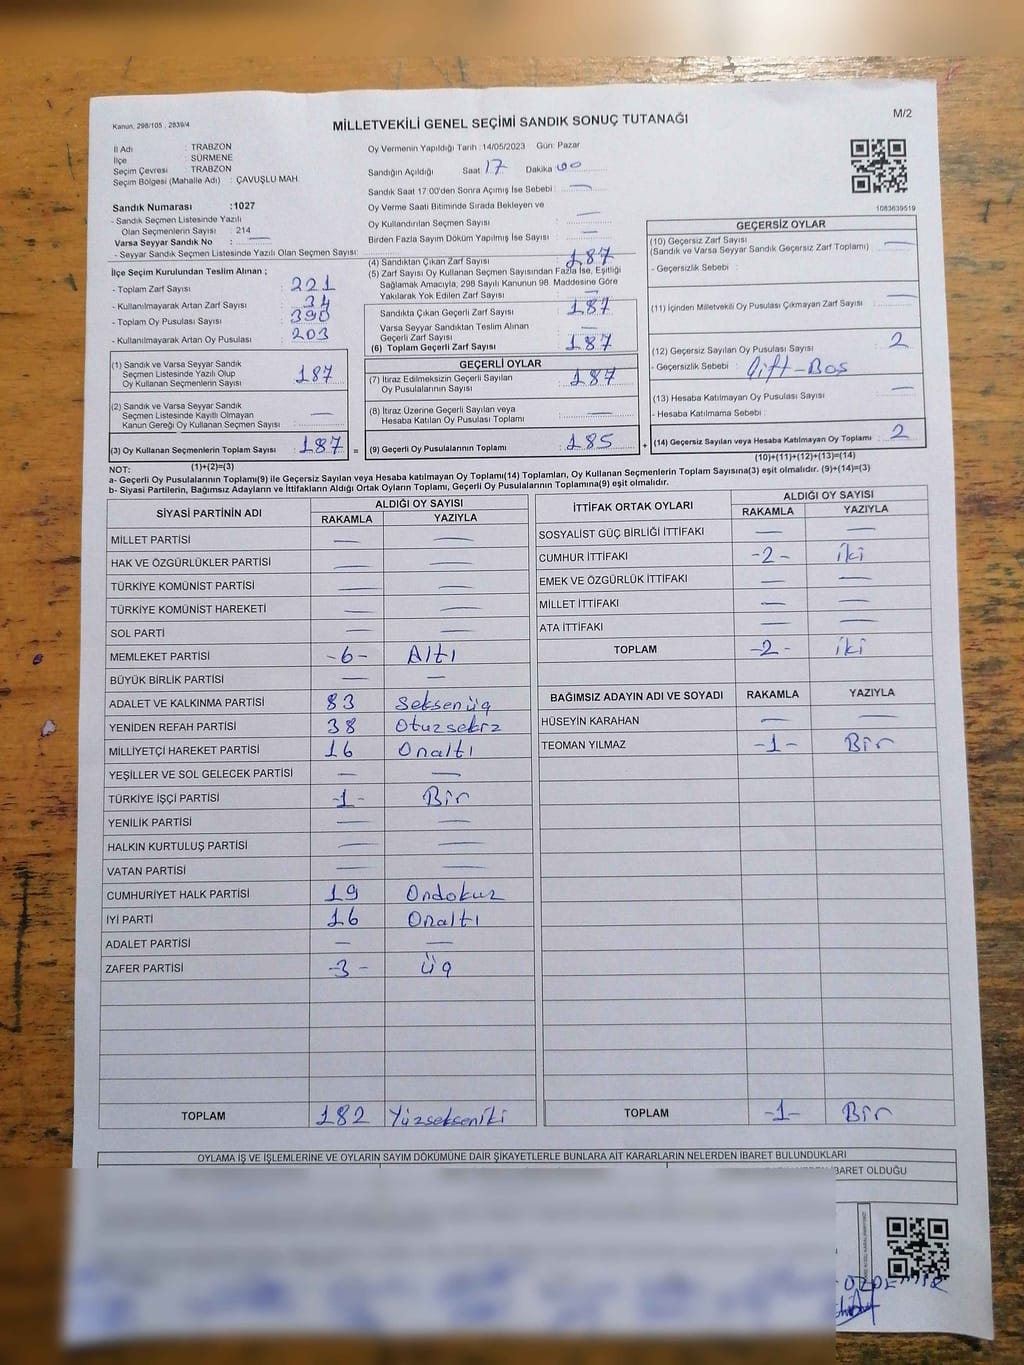 Kanun, 298/105 , 2839/4
MİLLETVEKİLİ GENEL SEÇİMİ SANDIK SONUÇ TUTANAĞI
M/2
İl Adı : TRABZON
İlçe : SÜRMENE
Seçim Çevresi : TRABZON
Seçim Bölgesi (Mahalle Adı) : ÇAVUŞLU MAH.
Sandık Numarası :1027
- Sandık Seçmen Listesinde Yazılı
Olan Seçmenlerin Sayısı : 214
Varsa Seyyar Sandık No : —
- Seyyar Sandık Seçmen Listesinde Yazılı Olan Seçmen Sayısı:
Oy Vermenin Yapıldığı Tarih :14/05/2023 Gün: Pazar
Sandığın Açıldığı Saat 17 Dakika 00
Sandık Saat 17:00'den Sonra Açımış İse Sebebi : —
Oy Verme Saati Bitiminde Sırada Bekleyen ve
Oy Kullandırılan Seçmen Sayısı : —
Birden Fazla Sayım Döküm Yapılmış İse Sayısı : —
1083639519
İlçe Seçim Kurulundan Teslim Alınan ;
- Toplam Zarf Sayısı : 221
- Kullanılmayarak Artan Zarf Sayısı : 34
- Toplam Oy Pusulası Sayısı : 390
- Kullanılmayarak Artan Oy Pusulası : 203
(1) Sandık ve Varsa Seyyar Sandık
Seçmen Listesinde Yazılı Olup
Oy Kullanan Seçmenlerin Sayısı : 187
(2) Sandık ve Varsa Seyyar Sandık
Seçmen Listesinde Kayıtlı Olmayan
Kanun Gereği Oy Kullanan Seçmen Sayısı : —
(3) Oy Kullanan Seçmenlerin Toplam Sayısı : 187 =
(4) Sandıktan Çıkan Zarf Sayısı : 187
(5) Zarf Sayısı Oy Kullanan Seçmen Sayısından Fazla İse, Eşitliği
Sağlamak Amacıyla, 298 Sayılı Kanunun 98. Maddesine Göre
Yakılarak Yok Edilen Zarf Sayısı : —
Sandıkta Çıkan Geçerli Zarf Sayısı : 187
Varsa Seyyar Sandıktan Teslim Alınan
Geçerli Zarf Sayısı : —
(6) Toplam Geçerli Zarf Sayısı : 187
GEÇERLİ OYLAR
(7) İtiraz Edilmeksizin Geçerli Sayılan
Oy Pusulalarının Sayısı : 187
(8) İtiraz Üzerine Geçerli Sayılan veya
Hesaba Katılan Oy Pusulaları Toplamı : —
(9) Geçerli Oy Pusulalarının Toplamı : 185 +
GEÇERSİZ OYLAR
(10) Geçersiz Zarf Sayısı
(Sandık ve Varsa Seyyar Sandık Geçersiz Zarf Toplamı) : —
- Geçersizlik Sebebi :
(11) İçinden Milletvekili Oy Pusulası Çıkmayan Zarf Sayısı : —
(12) Geçersiz Sayılan Oy Pusulası Sayısı : 2
- Geçersizlik Sebebi : Çift-Boş
(13) Hesaba Katılmayan Oy Pusulası Sayısı : —
- Hesaba Katılmama Sebebi :
(14) Geçersiz Sayılan veya Hesaba Katılmayan Oy Toplamı : 2
NOT: (1)+(2)=(3)
(10)+(11)+(12)+(13)=(14)
a- Geçerli Oy Pusulalarının Toplamı(9) ile Geçersiz Sayılan veya Hesaba katılmayan Oy Toplamı(14) Toplamları, Oy Kullanan Seçmenlerin Toplam Sayısına(3) eşit olmalıdır. (9)+(14)=(3)
b- Siyasi Partilerin, Bağımsız Adayların ve İttifakların Aldığı Ortak Oyların Toplamı, Geçerli Oy Pusulalarının Toplamına(9) eşit olmalıdır.
SİYASİ PARTİNİN ADI ALDIĞI OY SAYISI
RAKAMLA YAZIYLA
MİLLET PARTİSİ — —
HAK VE ÖZGÜRLÜKLER PARTİSİ — —
TÜRKİYE KOMÜNİST PARTİSİ — —
TÜRKİYE KOMÜNİST HAREKETİ — —
SOL PARTİ — —
MEMLEKET PARTİSİ -6- Altı
BÜYÜK BİRLİK PARTİSİ — —
ADALET VE KALKINMA PARTİSİ 83 Seksenüç
YENİDEN REFAH PARTİSİ 38 Otuzsekiz
MİLLİYETÇİ HAREKET PARTİSİ 16 Onaltı
YEŞİLLER VE SOL GELECEK PARTİSİ — —
TÜRKİYE İŞÇİ PARTİSİ -1- Bir
YENİLİK PARTİSİ — —
HALKIN KURTULUŞ PARTİSİ — —
VATAN PARTİSİ — —
CUMHURİYET HALK PARTİSİ 19 Ondokuz
İYİ PARTİ 16 Onaltı
ADALET PARTİSİ — —
ZAFER PARTİSİ -3- Üç
TOPLAM 182 Yüzsekseniki
İTTİFAK ORTAK OYLARI ALDIĞI OY SAYISI
RAKAMLA YAZIYLA
SOSYALİST GÜÇ BİRLİĞİ İTTİFAKI — —
CUMHUR İTTİFAKI -2- iki
EMEK VE ÖZGÜRLÜK İTTİFAKI — —
MİLLET İTTİFAKI — —
ATA İTTİFAKI — —
TOPLAM -2- iki
BAĞIMSIZ ADAYIN ADI VE SOYADI RAKAMLA YAZIYLA
HÜSEYİN KARAHAN — —
TEOMAN YILMAZ -1- Bir
TOPLAM -1- Bir
OYLAMA İŞ VE İŞLEMLERİNE VE OYLARIN SAYIM DÖKÜMÜNE DAİR ŞİKAYETLERLE BUNLARA AİT KARARLARIN NELERDEN İBARET BULUNDUKLARI
İBARET OLDUĞU
ÖZDEMİR